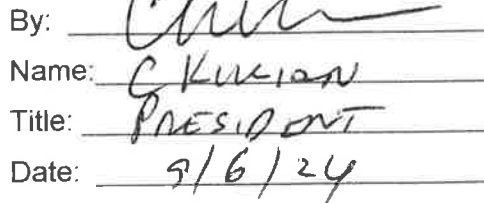 By:
Name: C KUKIAN
Title: PRESIDENT
Date: 9/6/24